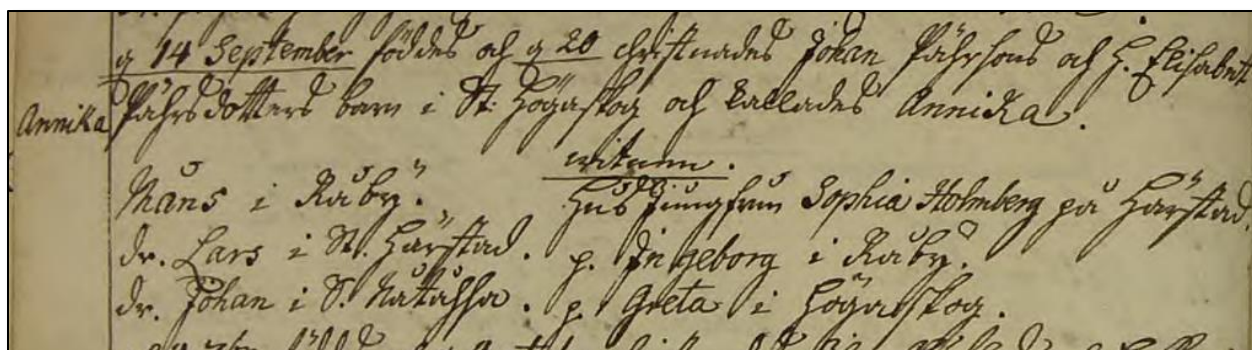 g 14 September föddes och g 20 christnades Johan Pährsons och H. Elisabeth
Annika Pährsdotters barn i St: Högaskog och kallades Annika.
witnen.
Måns i Råby. Husjungfrun Sophia Holmberg på Härstad.
dr. Lars i St. Härstad. p. Ingeborg i Råby.
dr. Johan i S. p. Greta i Högaskog.